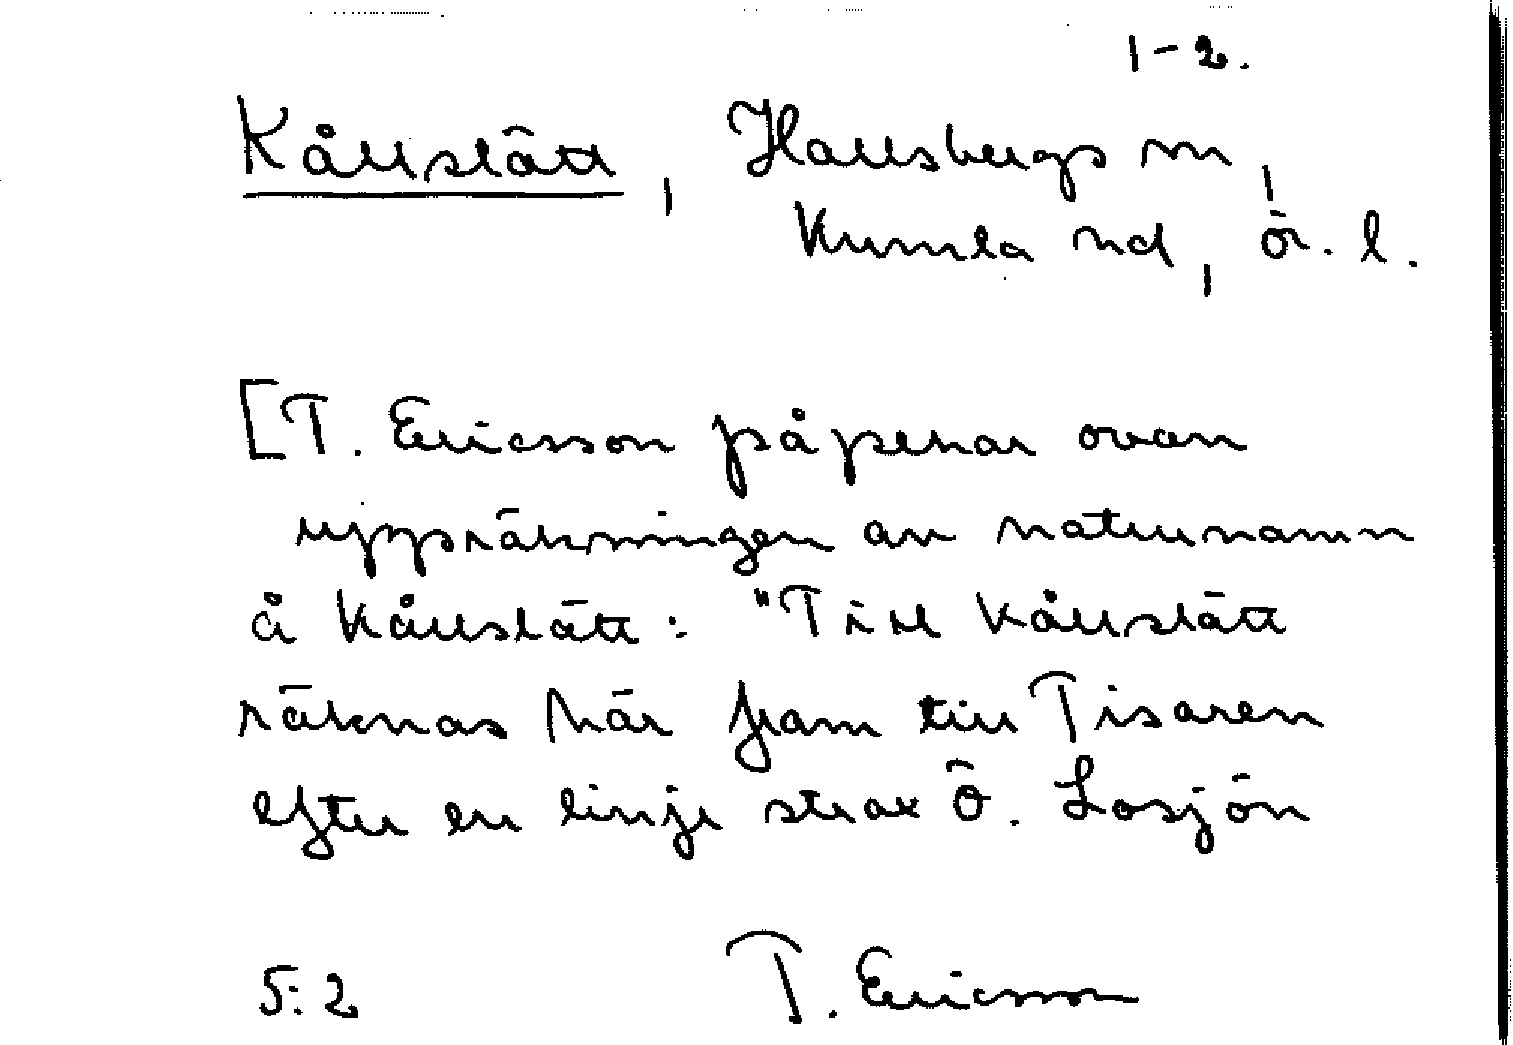 1-2.
Kållslätt, Hallsbergs sn,
Kumla hd, ör. l.
[T. Ericson påpekar ovan
uppräkningen av naturnamn
å Kållslätt: "Till Kållslätt
räknas här fram till Tisaren
efter en linje strax Ö. Losjön
5:2 T. Ericsson